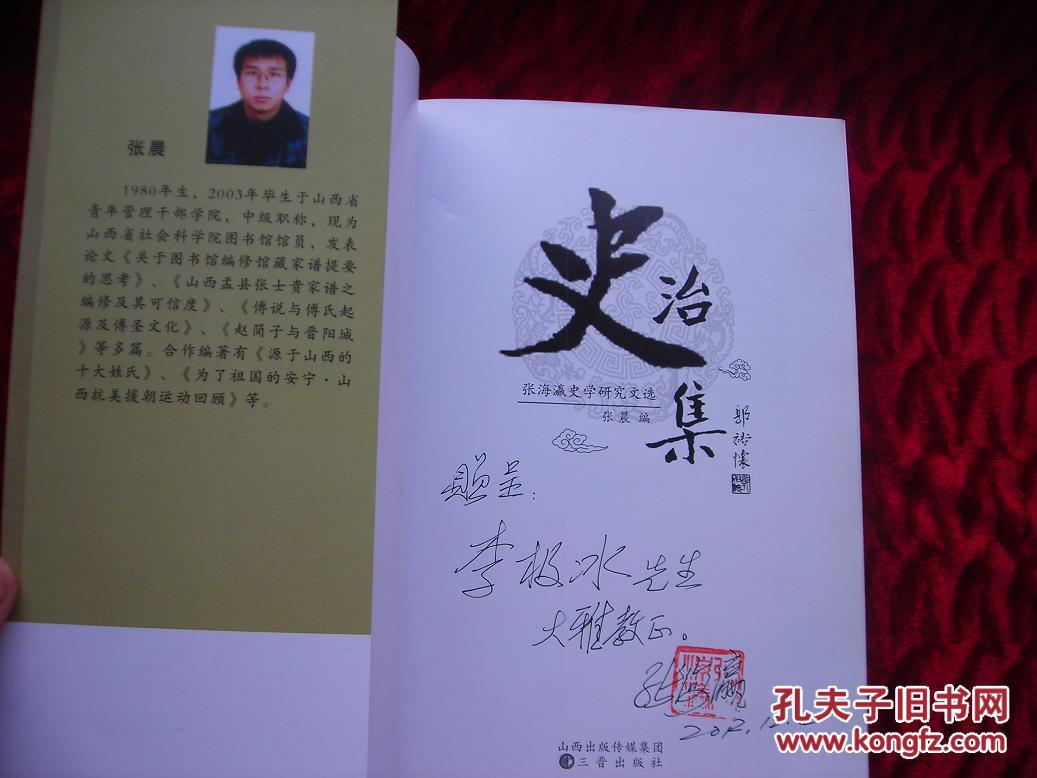 张晨
1980年生，2003年毕生于山西省
青年管理干部学院，中级职称，现为
山西省社会科学院图书馆馆员，发表
论文《关于图书馆编修馆藏家谱提要
的思考》、《山西盂县张士贵家谱之
编修及其可信度》、《傅说与傅氏起
源及傅圣文化》、《赵简子与晋阳城
》等多篇。合作编著有《源于山西的
十大姓氏》、《为了祖国的安宁·山
西抗美援朝运动回顾》等。
史治集
张海瀛史学研究文选
张晨 编
郭裕怀
赠呈：
李极冰先生
大雅教正。
张海瀛
山西出版传媒集团
三晋出版社
孔夫子旧书网
www.kongfz.com